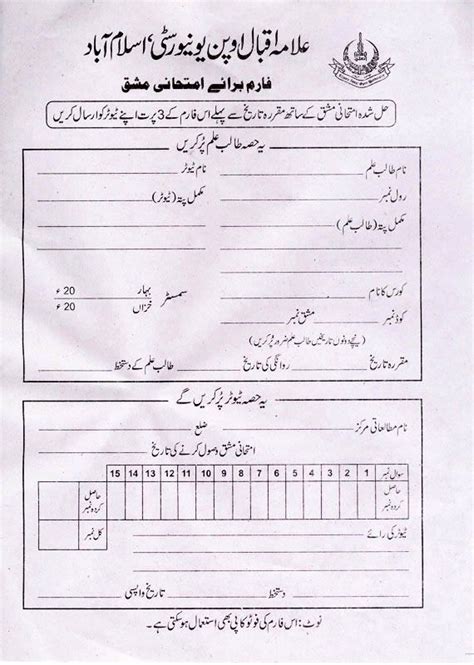 علامہ اقبال اوپن یونیورسٹی، اسلام آباد
فارم برائے امتحانی مشق
حل شدہ امتحانی مشق کے ساتھ مقررہ تاریخ سے پہلے اس فارم کے 3 پرت اپنے ٹیوٹر کو ارسال کریں
یہ حصہ طالب علم پُر کریں
نام طالب علم نام ٹیوٹر
رول نمبر مکمل پتہ (ٹیوٹر)
مکمل پتہ (طالب علم)
کورس کا نام سمسٹر بہار 20 ء
کوڈ نمبر مشق نمبر خزاں 20 ء
(نیچے دونوں تاریخیں طالب علم ضرور پُر کریں)
مقررہ تاریخ روانگی کی تاریخ طالب علم کے دستخط
یہ حصہ ٹیوٹر پُر کریں گے
نام مطالعاتی مرکز ضلع
امتحانی مشق وصول کرنے کی تاریخ
سوال نمبر 1 2 3 4 5 6 7 8 9 10 11 12 13 14 15
حاصل کردہ نمبر حاصل کردہ نمبر
ٹیوٹر کی رائے کل نمبر
دستخط تاریخ واپسی
نوٹ: اس فارم کی فوٹو کاپی بھی استعمال ہو سکتی ہے۔